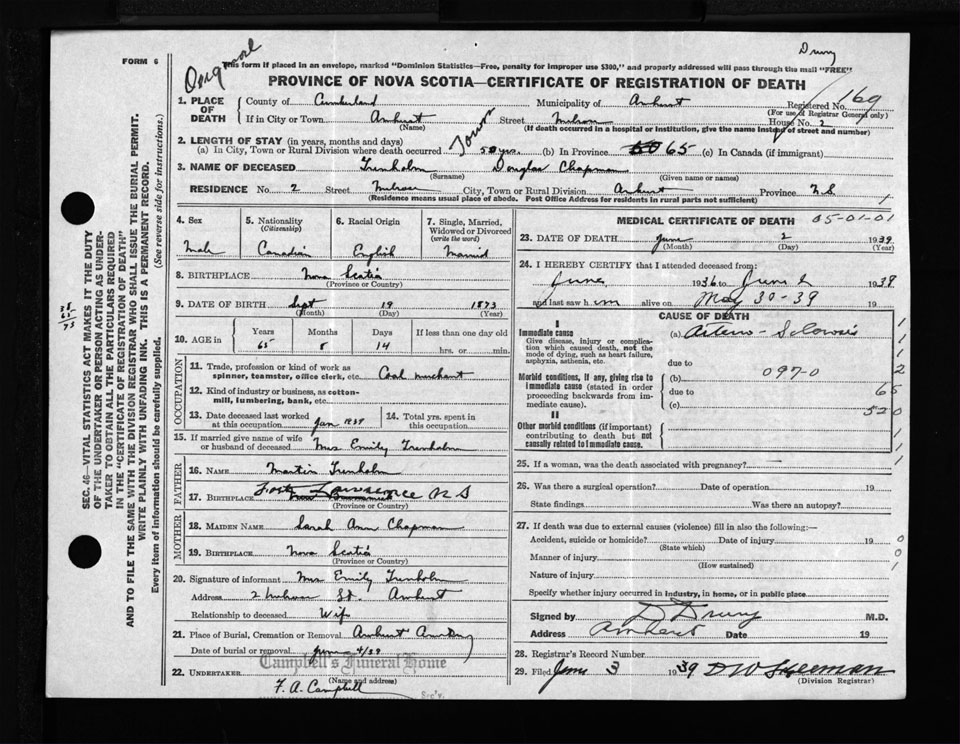 Drury
FORM 6
Original
This form if placed in an envelope, marked "Dominion Statistics—Free, penalty for improper use $300," and properly addressed will pass through the mail "FREE"
PROVINCE OF NOVA SCOTIA—CERTIFICATE OF REGISTRATION OF DEATH
169
1. PLACE OF DEATH County of Cumberland Municipality of Amherst Registered No.
(For use of Registrar General only)
If in City or Town Amherst Street House No. 2
(Name) (If death occurred in a hospital or institution, give the name instead of street and number)
2. LENGTH OF STAY (in years, months and days) Town
(a) In City, Town or Rural Division where death occurred 50 yrs. (b) In Province 65 (c) In Canada (if immigrant)
3. NAME OF DECEASED Trenholm Douglas Chapman
(Surname) (Given name or names)
RESIDENCE No. 2 Street City, Town or Rural Division Amherst Province N.S
(Residence means usual place of abode. Post Office Address for residents in rural parts not sufficient) 1
4. Sex 5. Nationality 6. Racial Origin 7. Single, Married, Widowed or Divorced
(Citizenship) (write the word)
Male Canadian English Married
8. BIRTHPLACE Nova Scotia
(Province or Country)
9. DATE OF BIRTH Sept 19 1873
(Month) (Day) (Year)
10. AGE in Years Months Days If less than one day old
65 8 14 hrs. or min.
OCCUPATION
11. Trade, profession or kind of work as spinner, teamster, office clerk, etc. Coal merchant
12. Kind of industry or business, as cotton-mill, lumbering, bank, etc.
13. Date deceased last worked at this occupation Jan 1939
14. Total yrs. spent in this occupation
15. If married give name of wife or husband of deceased Mrs Emily Trenholm
FATHER
16. NAME Martin Trenholm
17. BIRTHPLACE Fort Lawrence N S
(Province or Country)
MOTHER
18. MAIDEN NAME Sarah Ann Chapman
19. BIRTHPLACE Nova Scotia
(Province or Country)
20. Signature of informant Mrs Emily Trenholm
Address 2 St. Amherst
Relationship to deceased Wife
21. Place of Burial, Cremation or Removal Amherst
Date of burial or removal June 4/39
Campbell's Funeral Home
22. UNDERTAKER
(Name and address)
F. A. Campbell
Sec'y.
MEDICAL CERTIFICATE OF DEATH 05-01-01
23. DATE OF DEATH June 2 1939
(Month) (Day) (Year)
24. I HEREBY CERTIFY that I attended deceased from:
June 1936 to June 2 1939
and last saw him alive on May 30-39 19
CAUSE OF DEATH
I
Immediate cause (a) Arterio-Sclerosis
Give disease, injury or complication which caused death, not the mode of dying, such as heart failure, asphyxia, asthenia, etc.
due to
Morbid conditions, if any, giving rise to immediate cause (stated in order proceeding backwards from immediate cause).
(b) 097-0
due to 65
(c) 520
II
Other morbid conditions (if important) contributing to death but not causally related to immediate cause.
25. If a woman, was the death associated with pregnancy?
26. Was there a surgical operation? Date of operation 19
State findings Was there an autopsy?
27. If death was due to external causes (violence) fill in also the following:—
Accident, suicide or homicide? Date of injury 19 0
(State which)
Manner of injury 0
(How sustained)
Nature of injury 1
Specify whether injury occurred in industry, in home, or in public place
Signed by D Drury M.D.
Address Amherst Date 19
28. Registrar's Record Number
29. Filed June 3 1939 D W Freeman
(Division Registrar)
SEC. 46—VITAL STATISTICS ACT MAKES IT THE DUTY
OF THE UNDERTAKER OR PERSON ACTING AS UNDERTAKER TO OBTAIN ALL THE PARTICULARS REQUIRED
IN THE "CERTIFICATE OF REGISTRATION OF DEATH"
AND TO FILE THE SAME WITH THE DIVISION REGISTRAR WHO SHALL ISSUE THE BURIAL PERMIT.
WRITE PLAINLY WITH UNFADING INK. THIS IS A PERMANENT RECORD.
Every item of information should be carefully supplied. (See reverse side for instructions.)